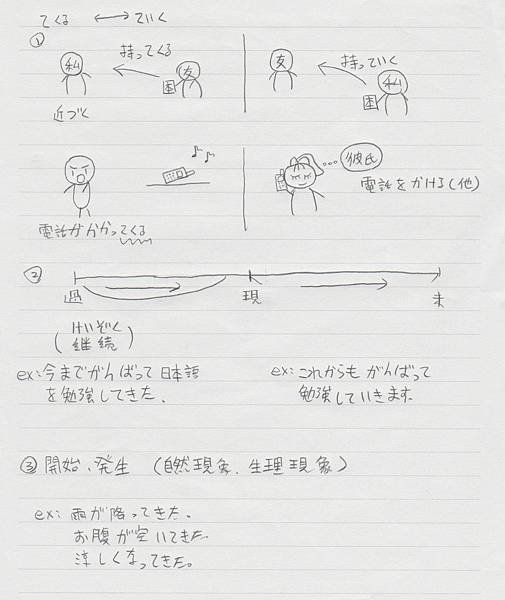 てくる ⟷ ていく
①
持ってくる
私
友
困
近づく
友
持っていく
困
私
電話がかかってくる
彼氏
電話をかける(他)
②
過 現 未
(けいぞく
継続)
ex:今までがんばって日本語
を勉強してきた.
ex:これからもがんばって
勉強していきます.
③開始、発生 (自然現象、生理現象)
ex:雨が降ってきた。
お腹が空いてきた.
涼しくなってきた。